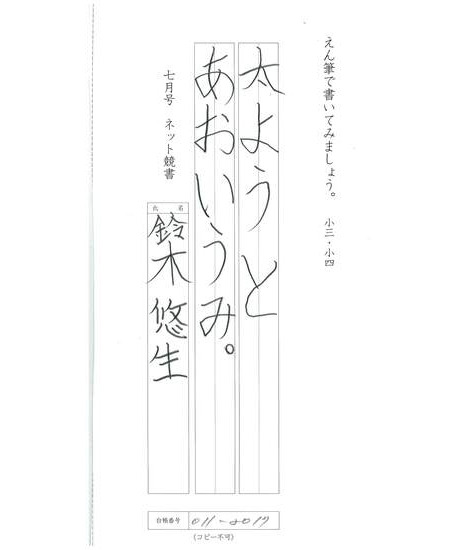 えん筆で書いてみましょう。 小三・小四
太ようと
あおいうみ。
七月号 ネット競書
氏名
鈴木悠生
台帳番号 011-2017
(コピー不可)